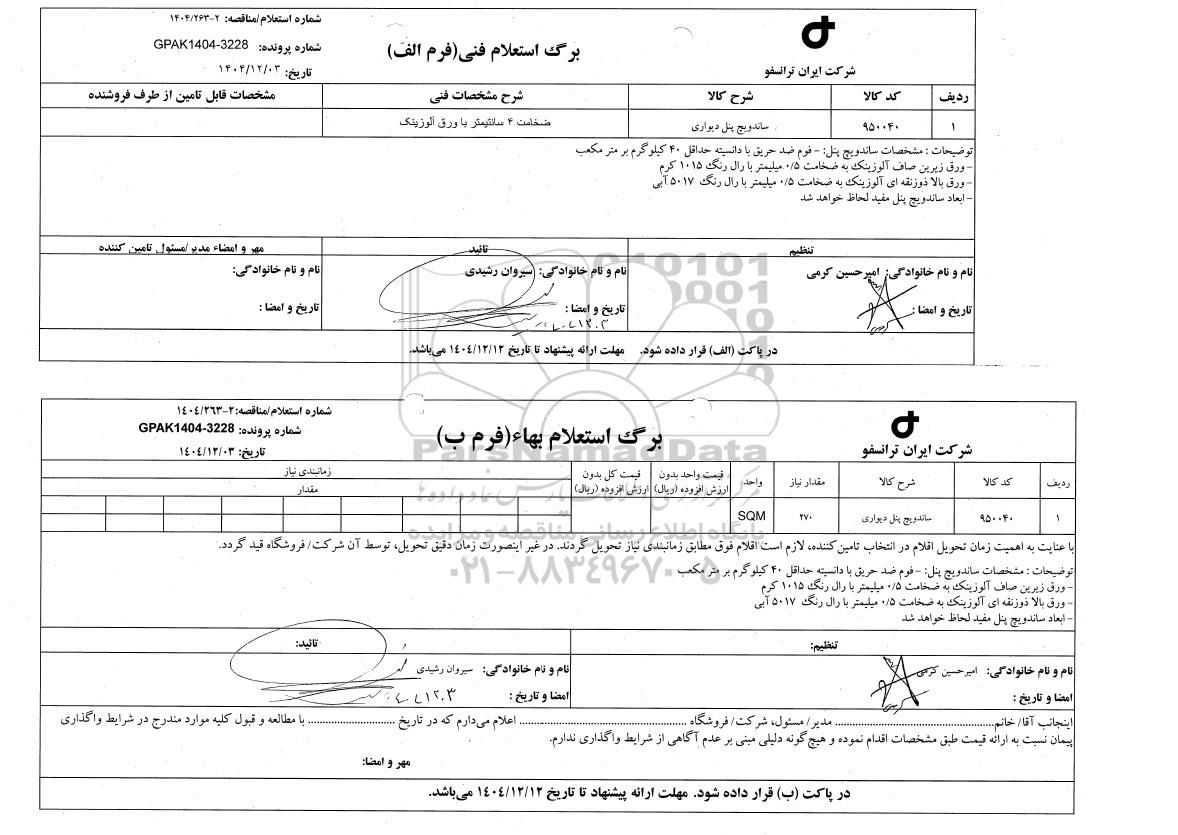 شماره استعلام/مناقصه: ۲-۱۴۰۴/۲۶۳
برگ استعلام فنی(فرم الف)
شماره پرونده: GPAK1404-3228
شرکت ایران ترانسفو
تاریخ: ۱۴۰۴/۱۲/۰۳
ردیف کد کالا شرح کالا شرح مشخصات فنی مشخصات قابل تامین از طرف فروشنده
۱ ۹۵۰۰۴۰ ساندویچ پنل دیواری ضخامت ۴ سانتیمتر با ورق آلوزینک
توضیحات : مشخصات ساندویچ پنل: - فوم ضد حریق با دانسیته حداقل ۴۰ کیلوگرم بر متر مکعب
- ورق زیرین صاف آلوزینک به ضخامت ۰/۵ میلیمتر با رال رنگ ۱۰۱۵ کرم
- ورق بالا ذوزنقه ای آلوزینک به ضخامت ۰/۵ میلیمتر با رال رنگ ۵۰۱۷ آبی
- ابعاد ساندویچ پنل مفید لحاظ خواهد شد
تنظیم تائید مهر و امضاء مدیر/مسئول تامین کننده
نام و نام خانوادگی: امیرحسین کرمی نام و نام خانوادگی: سیروان رشیدی نام و نام خانوادگی:
تاریخ و امضا : تاریخ و امضا : تاریخ و امضا :
در پاکت (الف) قرار داده شود. مهلت ارائه پیشنهاد تا تاریخ ۱۴۰۴/۱۲/۱۲ می‌باشد.
شماره استعلام/مناقصه:۲-۱۴۰۴/۲۶۳
برگ استعلام بهاء(فرم ب)
شماره پرونده: GPAK1404-3228
شرکت ایران ترانسفو
تاریخ: ۱۴۰۴/۱۲/۰۳
ParsNamadData
ردیف کد کالا شرح کالا مقدار نیاز واحد قیمت واحد بدون ارزش افزوده (ریال) قیمت کل بدون ارزش افزوده (ریال) زمانبندی نیاز
مقدار
۱ ۹۵۰۰۴۰ ساندویچ پنل دیواری ۲۷۰ SQM
پایگاه اطلاع رسانی مناقصه و مزایده
با عنایت به اهمیت زمان تحویل اقلام در انتخاب تامین‌کننده، لازم است اقلام فوق مطابق زمانبندی نیاز تحویل گردند. در غیر اینصورت زمان دقیق تحویل، توسط آن شرکت/ فروشگاه قید گردد.
۰۲۱-۸۸۳۴۹۶۷۰-۵
توضیحات : مشخصات ساندویچ پنل: - فوم ضد حریق با دانسیته حداقل ۴۰ کیلوگرم بر متر مکعب
- ورق زیرین صاف آلوزینک به ضخامت ۰/۵ میلیمتر با رال رنگ ۱۰۱۵ کرم
- ورق بالا ذوزنقه ای آلوزینک به ضخامت ۰/۵ میلیمتر با رال رنگ ۵۰۱۷ آبی
- ابعاد ساندویچ پنل مفید لحاظ خواهد شد
تنظیم: تائید:
نام و نام خانوادگی: امیرحسین کرمی نام و نام خانوادگی: سیروان رشیدی
امضا و تاریخ : امضا و تاریخ :
اینجانب آقا/ خانم........................ مدیر/ مسئول، شرکت/ فروشگاه ........................ اعلام می‌دارم که در تاریخ ........................ با مطالعه و قبول کلیه موارد مندرج در شرایط واگذاری
پیمان نسبت به ارائه قیمت طبق مشخصات اقدام نموده و هیچ‌گونه دلیلی مبنی بر عدم آگاهی از شرایط واگذاری ندارم.
مهر و امضا:
در پاکت (ب) قرار داده شود. مهلت ارائه پیشنهاد تا تاریخ ۱۴۰۴/۱۲/۱۲ می‌باشد.